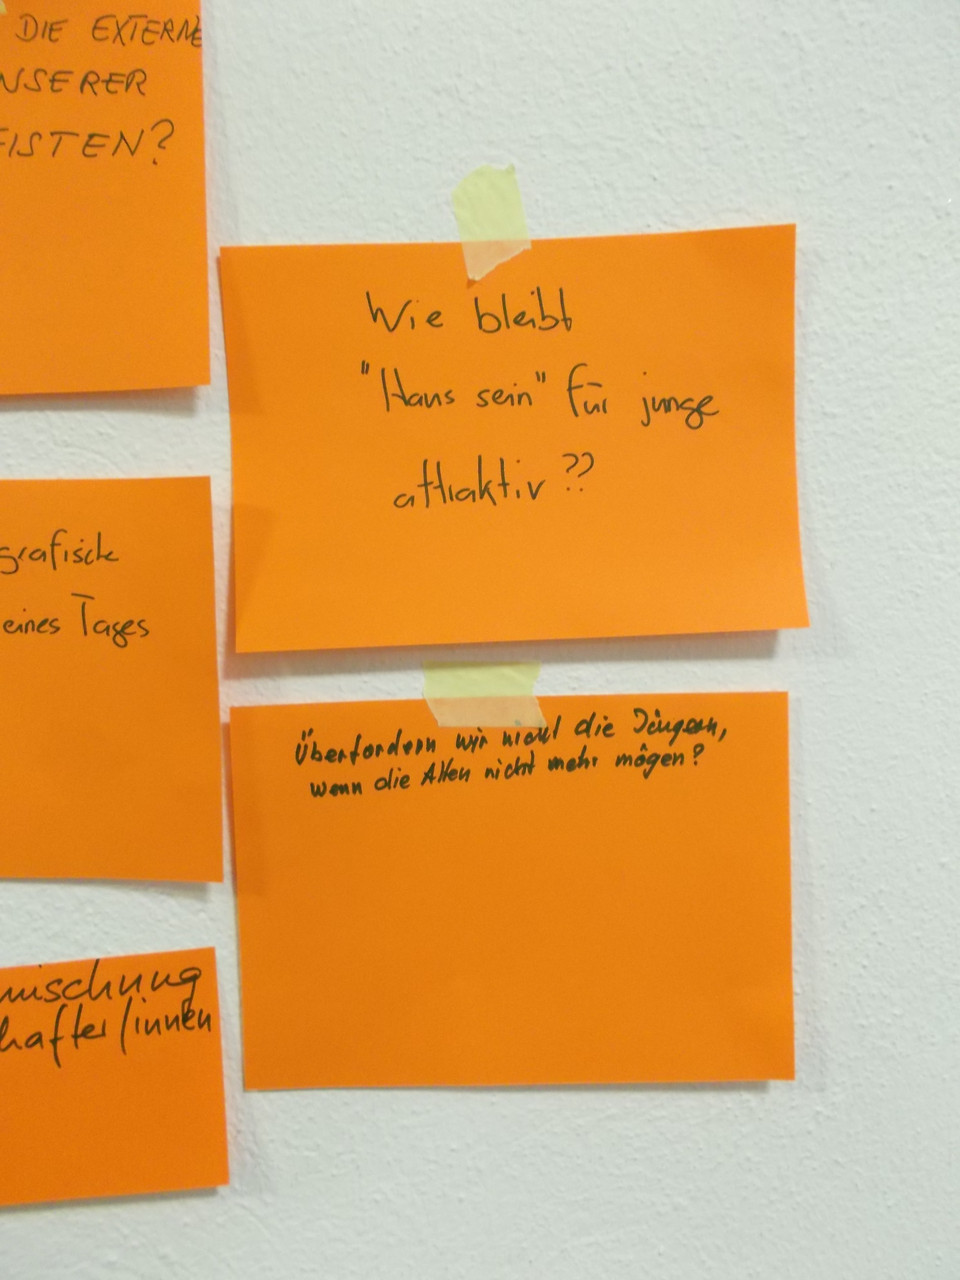 DIE EXTERNE
NSERER
EISTEN?
Wie bleibt
"Haus sein" für junge
attraktiv??
grafische
eines Tages
Überfordern wir nicht die Jüngeren,
wenn die Alten nicht mehr mögen?
mischung
hafter/innen